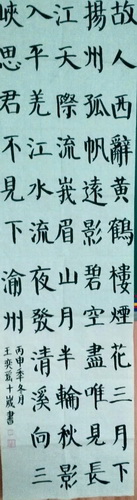 故人西辭黃鶴樓煙花三月下
揚州孤帆遠影碧空盡唯見長
江天際流峩眉山月半輪秋影
入平羌江水流夜發清溪向三
峽思君不見下渝州
丙申季冬月
王奕爲十歲書